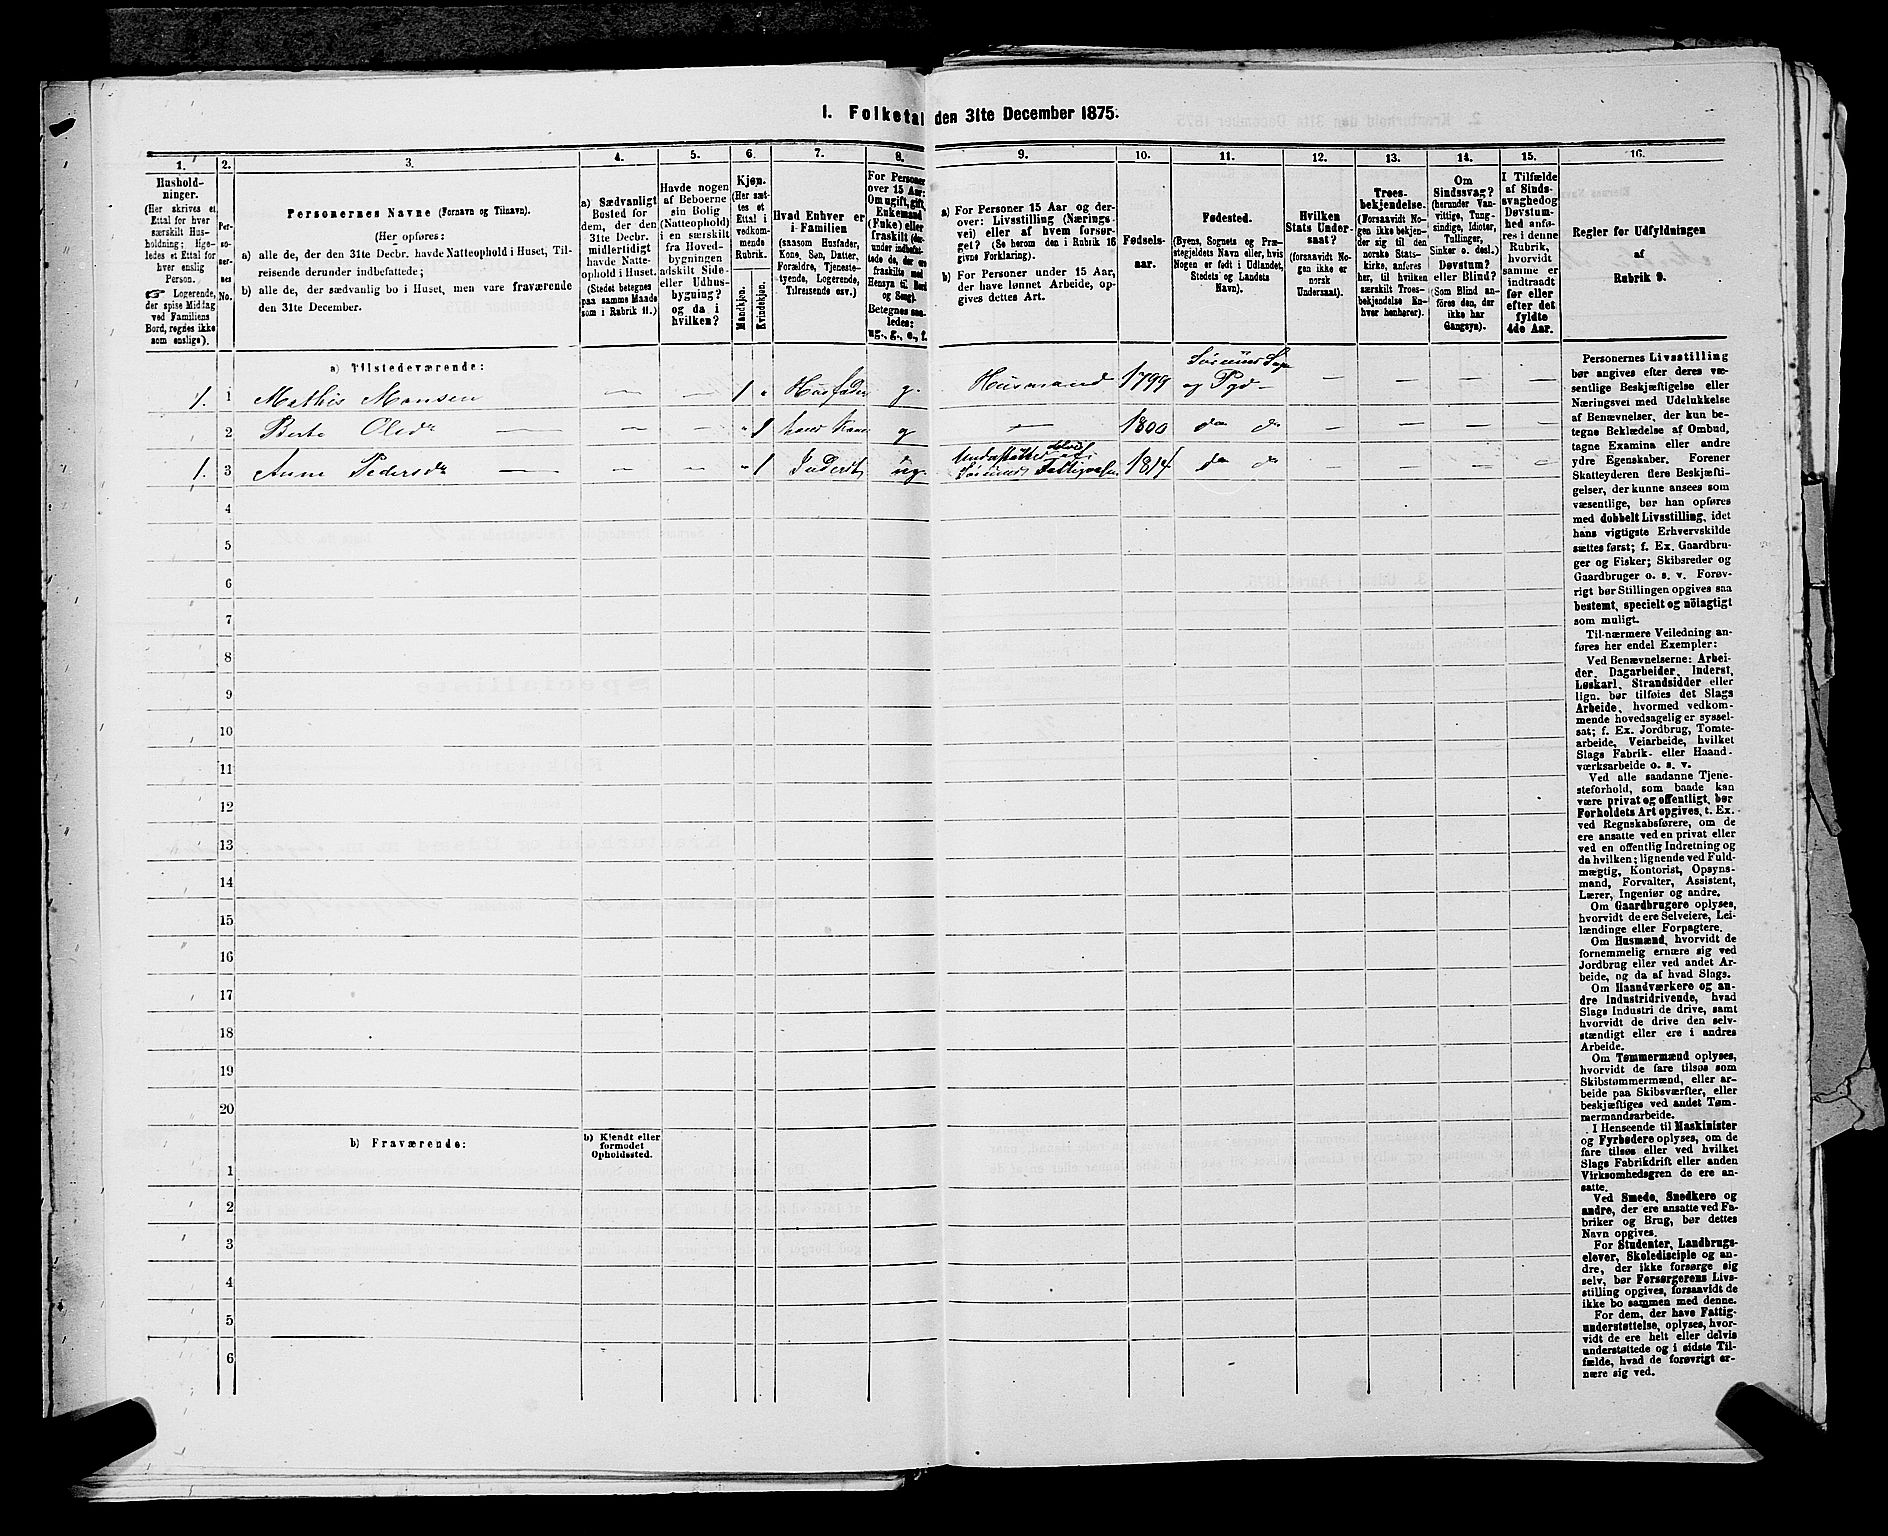 1. Folketal den 31te December 1875.
1. 2. 3. 4. 5. 6. 7. 8. 9. 10. 11. 12. 13. 14. 15. 16.
Hushold-
ninger.
(Her skrives et
Ettal for hver
særskilt Hus-
holdning; lige-
ledes et Ettal for
hver enslig
Person.
☞ Logerende,
der spise Middag
ved Familiens
Bord, regnes ikke
som enslige).
Per-
so-
ner-
nes
No.
Personernes Navne (Fornavn og Tilnavn).
(Her opføres:
a) alle de, der den 31te Decbr. havde Natteophold i Huset, Til-
reisende derunder indbefattede;
b) alle de, der sædvanlig bo i Huset, men vare fraværende
den 31te December.
a) Sædvanligt
Bosted for
dem, der den
31te Decbr.
midlertidigt
havde Natte-
ophold i Huset.
(Stedet betegnes
paa samme Maade
som i Rubrik 11.)
Havde nogen
af Beboerne
sin Bolig
(Natteophold)
i en særskilt
fra Hoved-
bygningen
adskilt Side-
eller Udhus-
bygning?
og da i
hvilken?
Kjøn.
(Her sæt-
tes et
Ettal i
vedkom-
mende
Rubrik.
Mandkjøn.
Kvindekjøn.
Hvad Enhver er
i Familien
(saasom Husfader,
Kone, Søn, Datter,
Forældre, Tjeneste-
tyende, Logerende,
Tilreisende osv.)
For Personer
over 15 Aar:
Om ugift, gift,
Enkemand
(Enke) eller
fraskilt (der-
under indbefat-
tede de, der ere
fraskilte med
Hensyn til Bord
og Seng).
Betegnes saa-
ledes:
ug., g., e., f.
a) For Personer 15 Aar og der-
over: Livsstilling (Nærings-
vei) eller af hvem forsør-
get? (Se herom den i Rubrik 16
givne Forklaring).
b) For Personer under 15 Aar,
der have lønnet Arbeide, op-
gives dettes Art.
Fødsels-
aar.
Fødested.
(Byens, Sognets og Præ-
stegjeldets Navn eller, hvis
Nogen er født i Udlandet,
Stedets og Landets
Navn).
Hvilken
Stats Under-
saat?
(forsaavidt No-
gen ikke er
norsk
Undersaat).
Troes-
bekjendelse.
(Forsaavidt No-
gen ikke bekjen-
der sig til den
norske Stats-
kirke, anføres
her, til hvilken
særskilt Troes-
bekjendelse En-
hver henhører).
Om
Sindssvag?
(herunder Van-
vittige, Tung-
sindige, Idioter,
Tullinger,
Sinker o. desl.)
Døvstum?
eller Blind?
(Som Blind an-
føres den, der
ikke har
Gangsyn).
I Tilfælde
af Sinds-
svaghed og
Døvstum-
hed anfø-
res i denne
Rubrik,
hvorvidt
samme er
indtraadt
før eller
efter det
fyldte
4de Aar.
Regler for Udfyldningen
af
Rubrik 9.
a) Tilstedeværende:
1. 1 Mathis Mansen — — 1 " Husfader g. Husmand 1799 og Pgd — — — —
2 Berte Olsdr — — — " 1 hans Kone g — 1800 do do — — — —
delvis
1. 3 Anne Pedersdr — — — " 1 Inderst ug. Understøttet af Fattigvæsen 1814 do do — — — —
4
5
6
7
8
9
10
11
12
13
14
15
16
17
18
19
20
b) Fraværende:
b) Kjendt eller
formodet
Opholdssted.
1
2
3
4
5
6
Personernes Livsstilling
bør angives efter deres væ-
sentlige Beskjæftigelse eller
Næringsvei med Udelukkelse
af Benævnelser, der kun be-
tegne Beklædelse af Ombud,
tagne Examina eller andre
ydre Egenskaber. Forener
Skatteyderen flere Beskjæfti-
gelser, der kunne ansees som
væsentlige, bør han opføres
med dobbelt Livsstilling, idet
hans vigtigste Erhvervskilde
sættes først; f. Ex. Gaardbru-
ger og Fisker; Skibsreder og
Gaardbruger o. s. v. Forøv-
rigt bør Stillingen opgives saa
bestemt, specielt og nöiagtigt
som muligt.
Til nærmere Veiledning an-
føres her endel Exempler:
Ved Benævnelserne: Arbei-
der, Dagarbeider, Inderst,
Løskarl, Strandsidder eller
lign. bør tilføies det Slags
Arbeide, hvormed vedkom-
mende hovedsagelig er syssel-
sat; f. Ex. Jordbrug, Tomte-
arbeide, Veiarbeide, hvilket
Slags Fabrik- eller Haand-
værksarbeide o. s. v.
Ved alle saadanne Tjene-
steforhold, som baade kan
være privat og offentligt, bør
Forholdets Art opgives, t. Ex.
ved Regnskabsførere, om de
ere ansatte ved en privat eller
ved en offentlig Indretning og
da hvilken; lignende ved Fuld-
mægtig, Kontorist, Opsyns-
mand, Forvalter, Assistent,
Lærer, Ingeniør og andre.
Om Gaardbrugere oplyses,
hvorvidt de ere Selveiere, Lei-
lændinge eller Forpagtere.
Om Husmænd, hvorvidt de
fornemmelig ernære sig ved
Jordbrug eller ved andet Ar-
beide, og da af hvad Slags.
Om Haandværkere og an-
dre Industridrivende, hvad
Slags Industri de drive, samt
hvorvidt de drive den selv-
stændigt eller ere i andres
Arbeide.
Om Tømmermænd oplyses,
hvorvidt de fare tilsøs som
Skibstømmermænd, eller ar-
beide paa Skibsværfter, eller
beskjæftiges ved andet Tøm-
mermandsarbeide.
I Henseende til Maskinister
og Fyrbødere oplyses, om de
fare tilsøs eller ved hvilket
Slags Fabrikdrift eller anden
Virksomhedsgren de ere an-
satte.
Ved Smede, Snedkere og
andre, der ere ansatte ved Fa-
briker og Brug, bør dettes
Navn opgives.
For Studenter, Landbrugs-
elever, Skoledisciple og an-
dre, der ikke forsørge sig
selv, bør Forsørgerens Livs-
stilling opgives, forsaavidt de
ikke bo sammen med denne.
For dem, der have Fattig-
understøttelse, oplyses, hvor-
vidt de ere helt eller delvis
understøttede og i sidste Til-
fælde, hvad de forøvrigt er-
nære sig ved.